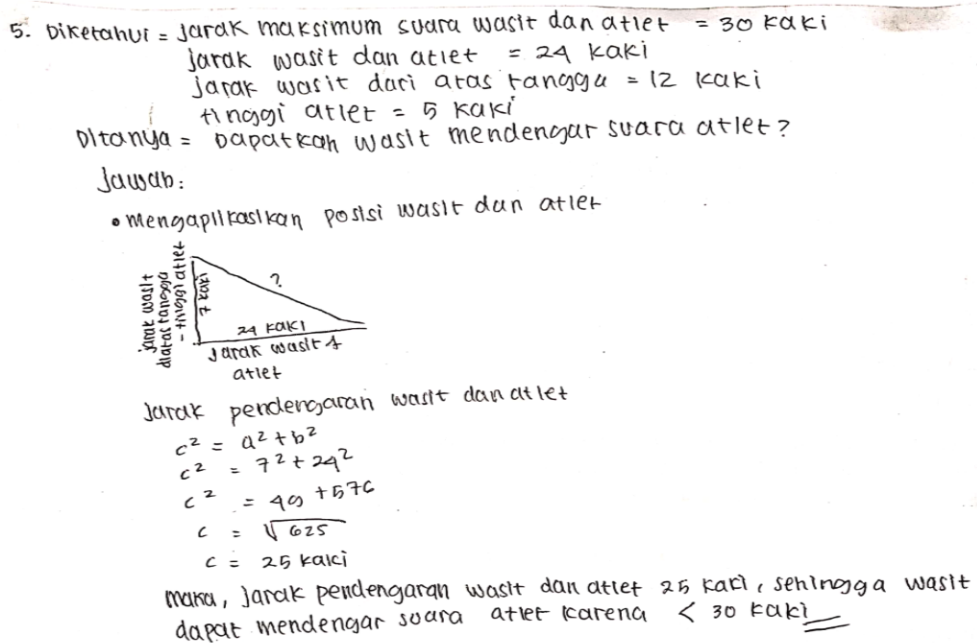 5. Diketahui = Jarak maksimum suara wasit dan atlet = 30 kaki
jarak wasit dan atlet = 24 kaki
Jarak wasit dari atas tangga = 12 kaki
tinggi atlet = 5 kaki
Ditanya = Dapatkah wasit mendengar suara atlet?
Jawab:
• Mengaplikasikan posisi wasit dan atlet
jarak wasit
diatas tangga
- tinggi atlet
7 kaki
?
24 kaki
Jarak wasit &
atlet
Jarak pendengaran wasit dan atlet
c² = a² + b²
c² = 7² + 24²
c² = 49 + 576
c = √625
c = 25 kaki
maka, jarak pendengaran wasit dan atlet 25 kaki, sehingga wasit
dapat mendengar suara atlet karena < 30 kaki